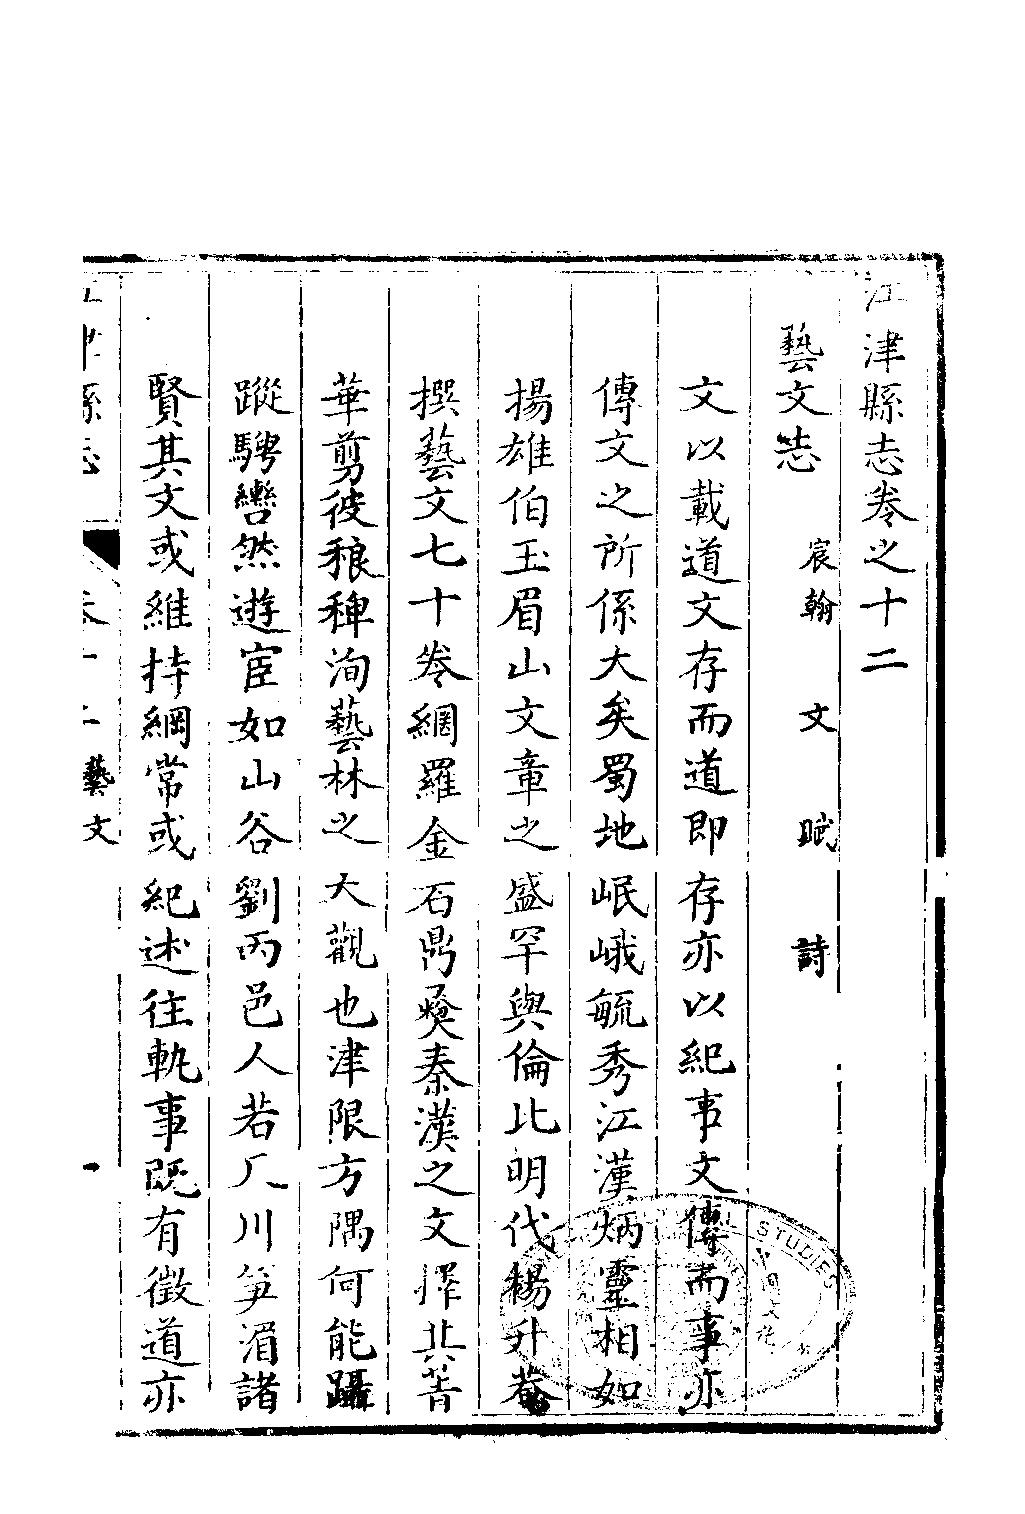 江津縣志卷之十二
藝文志 宸翰 文 賦 詩
文以載道文存而道即存亦以紀事文傳而事亦
傳文之所係大矣蜀地岷峨毓秀江漢炳靈相如
揚雄伯玉眉山文章之盛罕與倫比明代楊升菴
撰藝文七十卷網羅金石鼎彝秦漢之文擇其菁
華剪彼稂稗洵藝林之大觀也津限方隅何能躡
蹤騁轡然遊宦如山谷劉丙邑人若厂川笋湄諸
賢其文或維持綱常或紀述往軌事既有徵道亦
江津縣志 卷十二 藝文 一
STUDIES